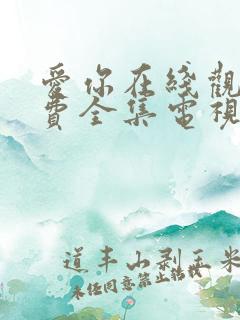 愛你在綫觀
費全集電視
道丰山剥玉米
未经同意禁止转载